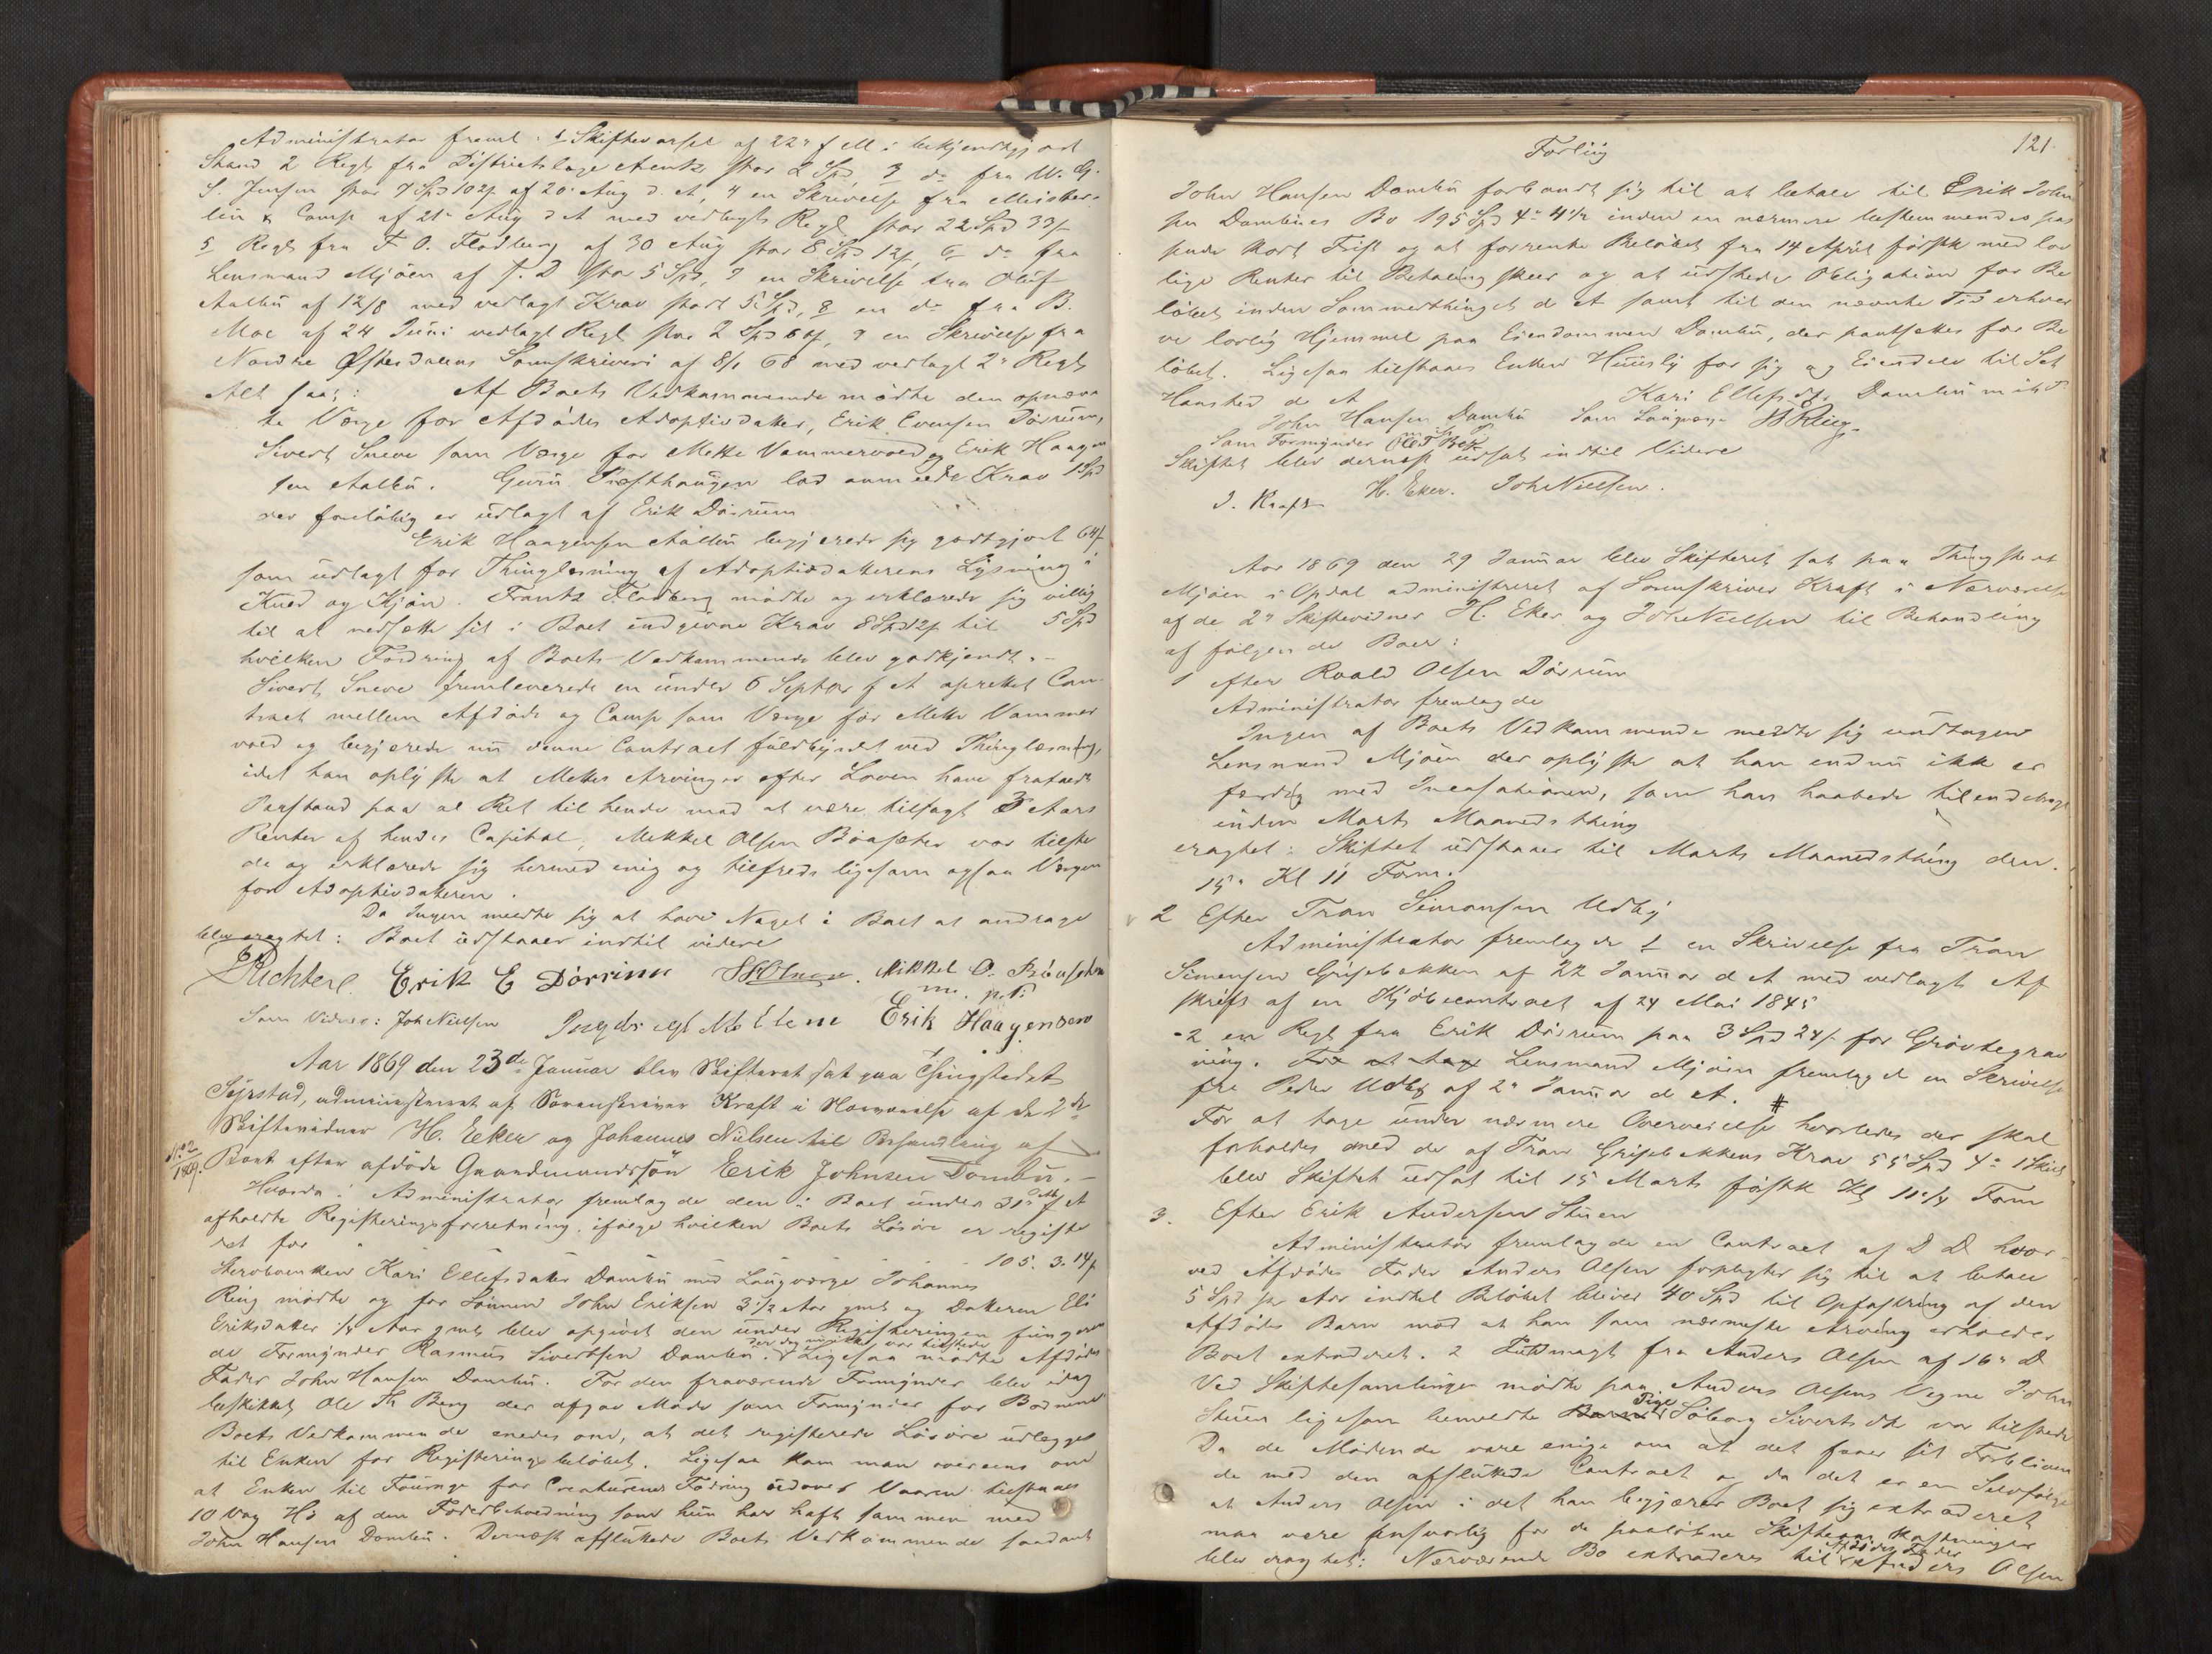 Administrator freml: 1 Skiftevarsel af 22de f M: bekjendtgjort
Stand 2 Regl fra Districtslæge Arentz stor 2 Spd, 3 do fra W. G.
S. Jensen stor 7 Spd 102 s af 20de Aug d. A, 4 en Skrivelse fra
& Comp af 21de Aug d A med vedlagt Regl stor 22 Spd 33 s
5 Regl fra F O. Flodberg af 30 Aug stor 8 Spd 12 s, 6 do fra
Lensmand Mjöen af s. D stor 5 Spd, 7 en Skrivelse fra Oluf
Aalbu af 12/8 med vedlagt Krav stort 5 Spd, 8 en do fra B.
Moe af 24 Juni vedlagt Regl stor 2 Spd 60 s, 9 en Skrivelse fra
Nordre Østerdalens Sorenskriveri af 8/1 68 med vedlagt 2de Regl
Alt saal: Af Boets Vedkommende mödte den opnævn
te Værge for Afdödes Adoptivdatter, Erik Evensen Dörrum,
Sivert Sneve som Værge for Mette Vammervold og Erik Haagen
sen Aalbu. Guru Præsthaugen lod anmelde Krav 1 Spd
der foreløbig er udlagt af Erik Dörrum
Erik Haagensen Aalbu begjærede sig godtgjort 64 s
som udlagt for Thinglæsning af Adoptivdatterens Lysning i
Kuld og Kjön. Frantz Flodberg mödte og erklærede sig villig
til at nedsætte sit i Boet indgivne Krav 8 Spd 12 s til 5 Spd
hvilken Fordring af Boets Vedkommende blev godkjendt.-
Sivert Sneve fremleverede en under 6 Septbr f A oprettet Con-
tract mellem Afdöde og Comp som Værge for Mette Vammer
vold og begjærede nu denne Contract fuldbyrdet ved Thinglæsning,
idet han oplyste at Mettes Arvinger efter Loven have frafaldt
Paastand paa al Ret til hende mod at være tilsagt 3 Aars
Renter af hendes Capital, Mekkel Olsen Böasæter var tilste
de og erklærede sig hermed enig og tilfreds ligesom ogsaa Værgen
for Adoptivdatteren.
Da Ingen meldte sig at have Noget i Boet at andrage
blev eragtet: Boet udstaaer indtil videre
Richter. Erik E Dörrum Mikkel O. Böasæter
m. p. P.
Som Vidner: Joh Nielsen Erik Haagensen
Aar 1869 den 23de Januar blev Skifteret sat paa Thingstedet
administreret af Sorenskriver Kraft i Nærværelse af de 2de
Skiftevidner H. Eeker og Johannes Nielsen til Behandling af
No 2 1869. Boet efter afdöde Gaardmandssön Erik Johnsen Dombu.-
Hvorda: Administrator fremlagde den i Boet under 31te f A
afholdte Registreringsforretning, ifölge hvilken Boets Lösöre er registre
ret for - - - 105. 3. 14 s
Sterbboenken Kari Ellefsdatter Dombu med Laugværge Johannes
Ring mödte og for Sönnen John Eriksen 3 1/2 Aar gml og Datteren Eli
Eriksdatter 1/4 Aar gml blev opgivet den under Registreringen fungeren
de Formynder Rasmus Sivertsen Dombu. der dog ei ikke var tilstede Ligesaa mödte Afdödes
Fader John Hansen Dombu. For den fraværende Formynder blev idag
beskikket Ole Th Berg der afgav Möde som Formynder for Börnene
Boets Vedkommende enedes om, at det registrerede Lösöre udlægges
til Enken for Registreringsbelöbet. Ligesaa kom man overeens om
at Enken til Fourage for Creaturenes Födring udover Vaaren tilstaaes
10 Vog Hö af den Foderbeholdning som hun har haft sammen med
John Hansen Dombu. Dernæst afsluttede Boets Vedkommende saadant
121.
Forliig
John Hansen Dombu forbandt sig til at betale til Erik John
sen Dombues Bo 195 Spd 4 - 4 1/2 inden en nærmere bestemmendes pas
sende kort Frist og at forrente Belöbet fra 14 April förstk med lov
lige Renter til Betaling skeer og at udstede Obligation for Be
löbet inden Sommerthinget d A samt til den nævnte Tid erhver
ve lovlig Hjemmel paa Eiendommen Dombu, der pantsættes for Be
löbet. Ligesaa tilstaaes Enken Huusly for sig og Eiendele til Set
Hansted d A Kari Ellefsdtr Dombu m i P
John Hansen Dombu Som Laugværge J Ring
m p P
Som Formynder Ole T Berg
Skiftet blev dernæst udsat indtil Videre
J. Kraft H. Eker. Joh Nielsen.
Aar 1869 den 29 Januar blev Skifteret sat paa Thingstedet
Mjöen i Opdal administreret af Sorenskriver Kraft i Nærværelse
af de 2de Skiftevidner H. Eker og Joh Nielsen til Behandling
af fölgende Boer:
1 efter Roald Olsen Dörrum
Administrator fremlagde
Ingen af Boets Vedkommende meldte sig undtagen
Lensmand Mjöen der oplyste at han endnu ikke er
færdig med Incasationen, som han haabede tilendebragt
inden Marts Maanedsthing
eragtet: Skiftet udstaaer til Marts Maanedsthing den
15de Kl 11 Form.
2 Efter Tron Simonsen Udby
Administrator fremlagde 1 en Skrivelse fra Tron
Simonsen Grisebakken af 22 Januar d A med vedlagt Af
skrift af en Kjöbecontract af 24 Mai 1845
-2 en Regl fra Erik Dörrum paa 3 Spd 24 s for Grövtegrav
ning. For at tage Lensmand Mjöen fremlagde en Skrivelse
fra Peder Udby af 2de Januar d A. #
For at tage under nærmere Overveielse hvorledes der skal
forholdes med de af Tron Grisebakkens Krav 55 Spd 4 - 1 Skill
blev Skiftet udsat til 15 Marts förstk Kl 11 1/2 Form
3. Efter Erik Andersen Stuen
Administrator fremlagde en Contract af D D hvor-
ved Afdödes Fader Anders Olsen forpligter sig til at betale
5 Spd pr Aar indtil Belöbet bliver 40 Spd til Opfostring af den
Afdödes Barn mod at han som nærmeste Arving erholder
Boet extraderet. 2 Fuldmagt fra Anders Olsen af 16de D
Ved Skiftesamlingen mödte paa Anders Olsens Vegne John
Stuen ligesom bemeldte Barns Pige Söborg Sivertsdtr var tilstede
Da de Mödende vare enige om at det faaer sit Forblivende
med den afsluttede Contract og da det er en Selvfölge
at Anders Olsen i det han begjærer Boet sig extraderet
maa være ansvarlig for de paalöbne Skifteomkostninger
blev eragtet: Nærværende Bo extraderes til Afdödes Fader Anders Olsen